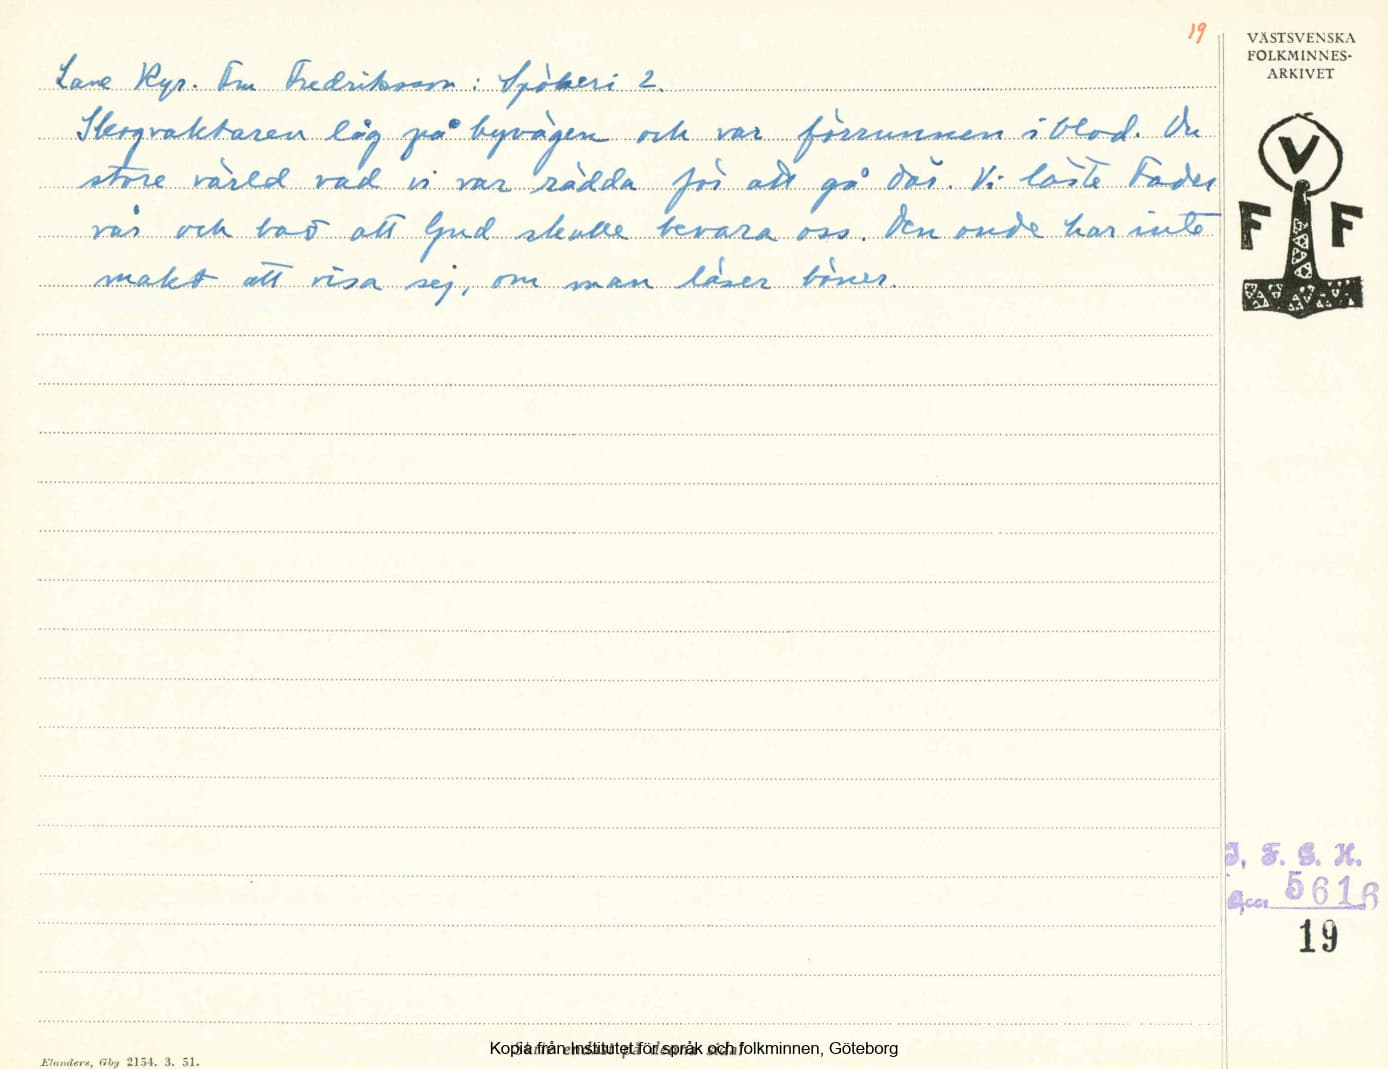 19
VÄSTSVENSKA
FOLKMINNES-
ARKIVET
Lane Ryr. Em Fredriksson: Spökeri 2.
Skogvaktaren låg på byvägen och var förrunnen i blod. Du
store värld vad vi var rädda för att gå där. Vi läste Fader
vår och bad att Gud skulle bevara oss. Den onde har inte
makt att visa sej, om man läser böner.
V
F F
I. F. G. H.
Acc. 5616
19
Elanders, Gbg 2154. 3. 51.
Kopia från Institutet för språk och folkminnen, Göteborg